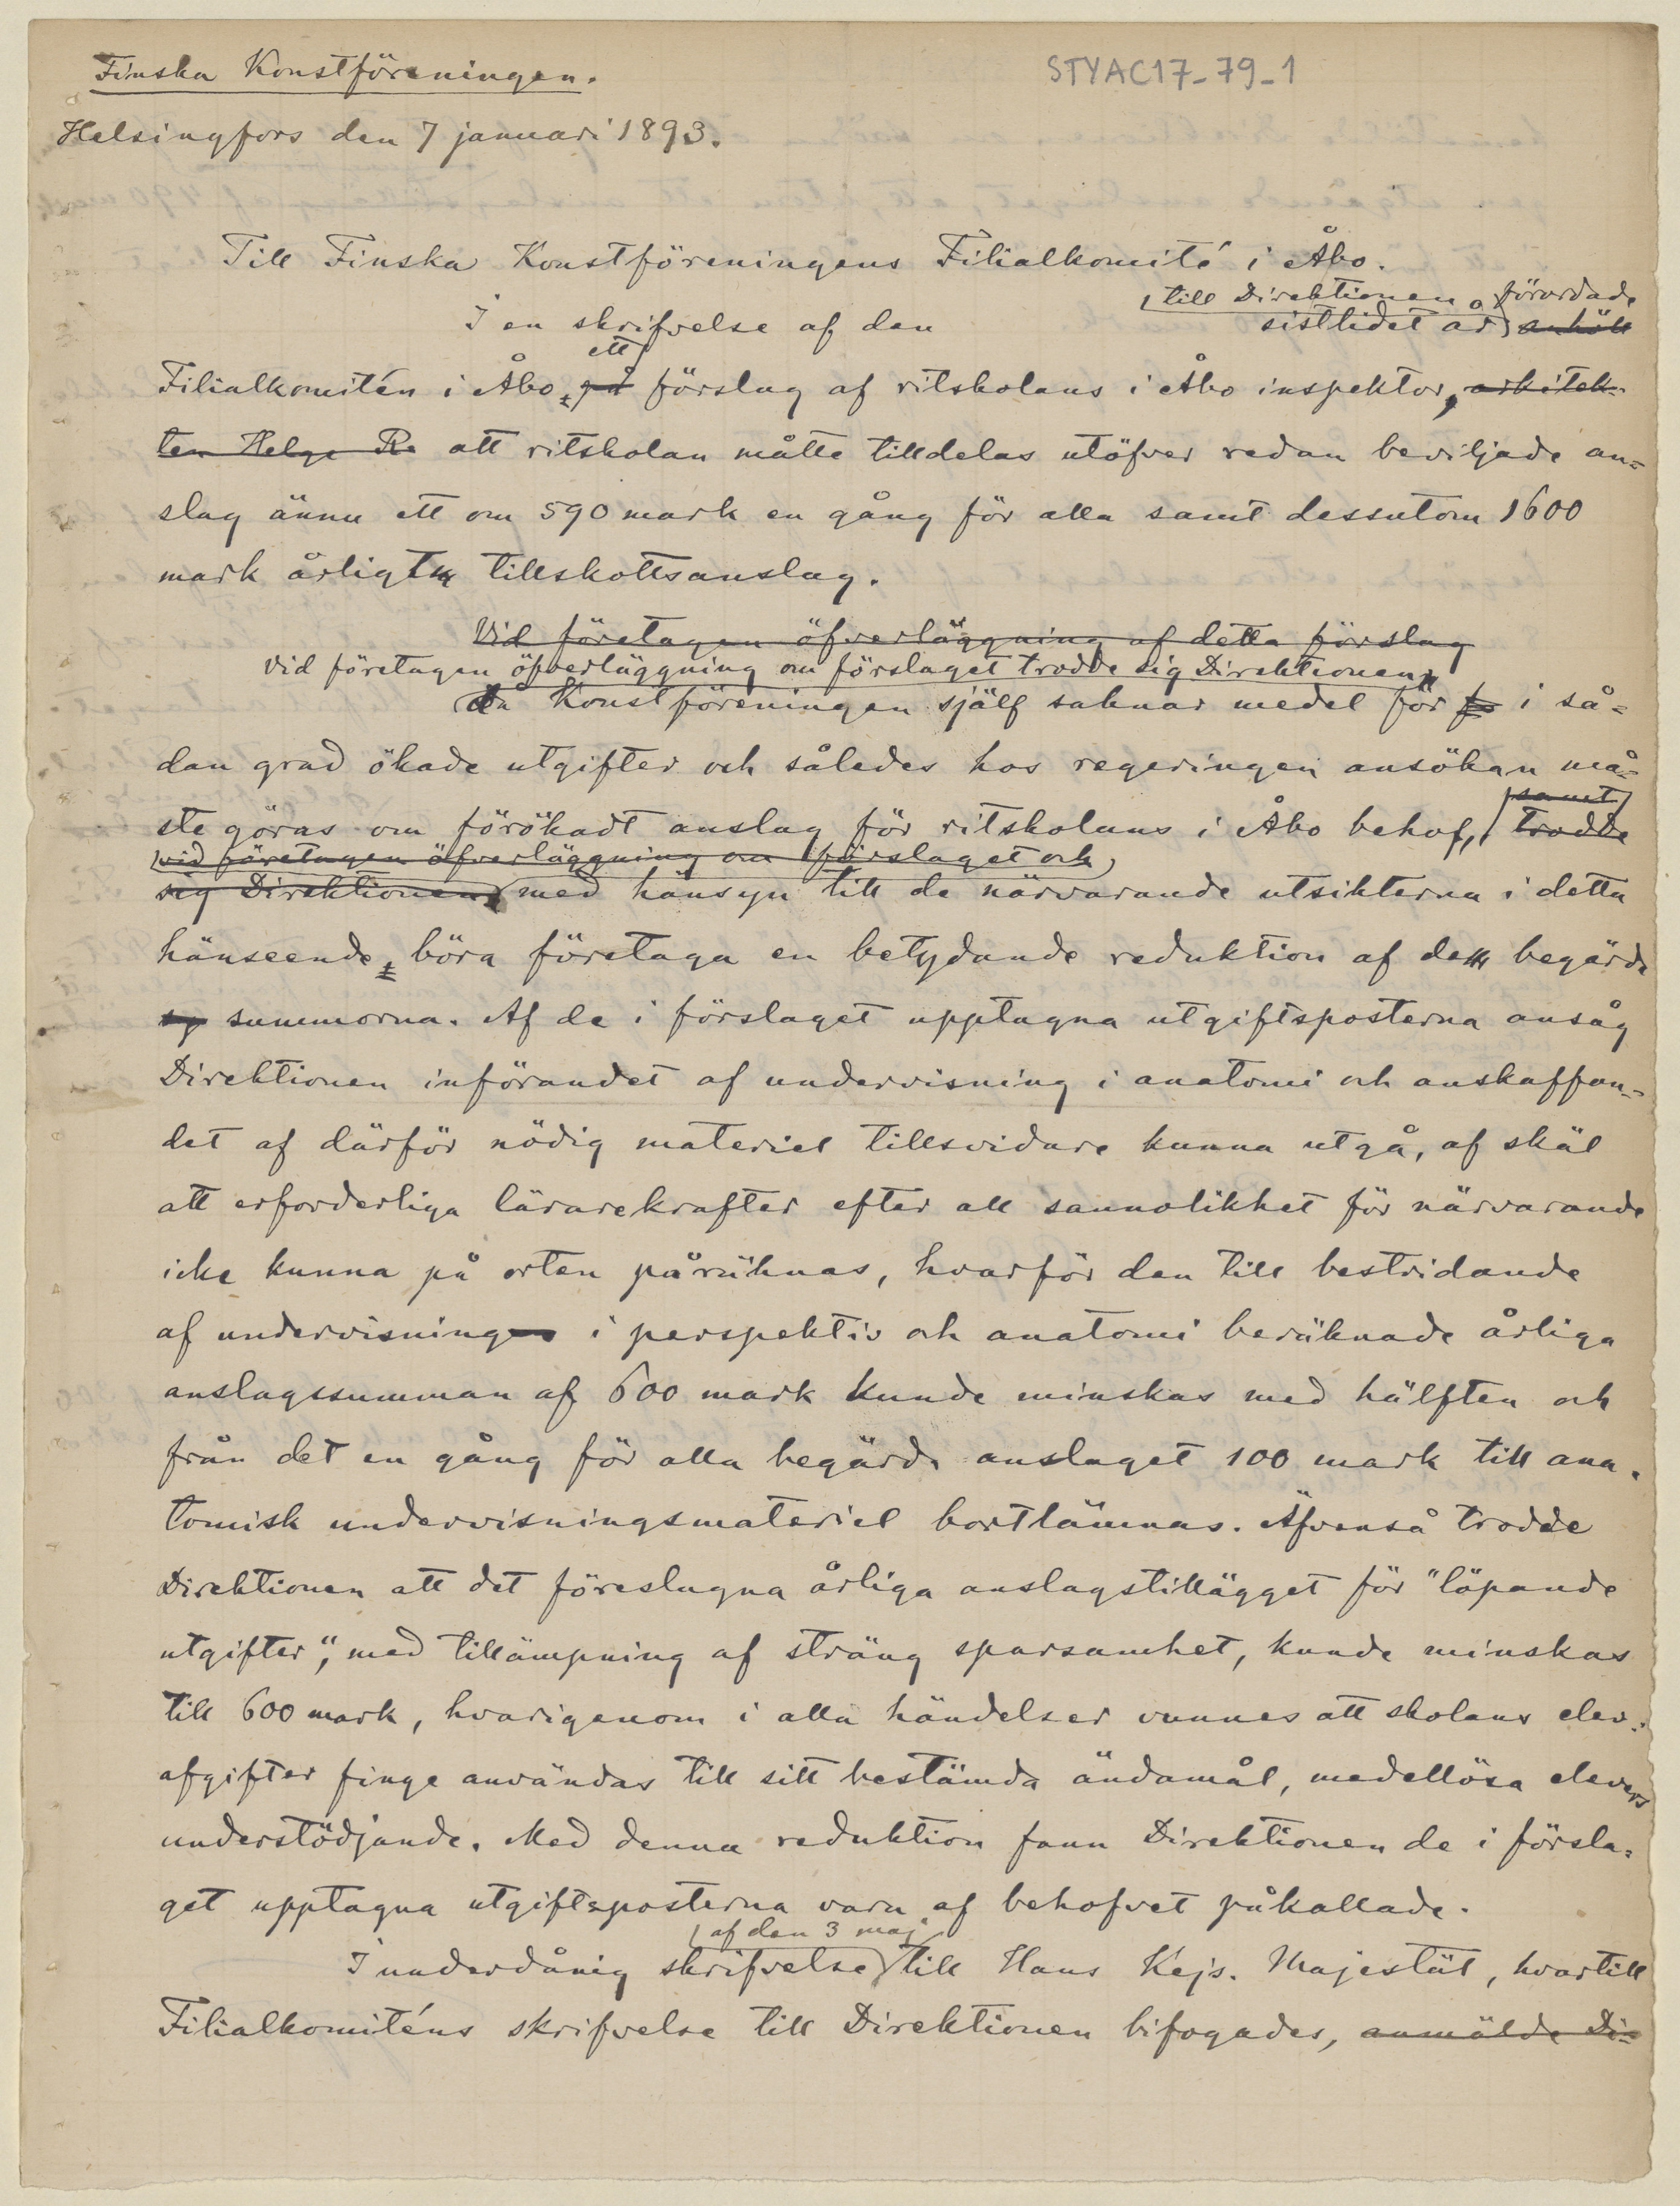 Finska Konstföreningen.
STYAC17_79_1
Helsingfors den 7 januari 1893.
Till Finska Konstföreningens Filialkomité i Åbo.
till Direktionen förordade
I en skrifvelse af den sistlidet år anhöll
ett
Filialkomitén i Åbo, på förslag af ritskolans i Åbo inspektor, arkitek-
ten Helge Ra att ritskolan måtte tilldelas utöfver redan beviljade an-
slag ännu ett om 590 mark en gång för alla samt dessutom 1600
mark årligt tillskottsanslag.
Vid företagen öfverläggning af detta förslag
Vid företagen öfverläggning om förslaget trodde sig Direktionen,
då Konstföreningen själf saknar medel för fö i så-
dan grad ökade utgifter och således hos regeringen ansökan må-
samt
ste göras om förökadt anslag för ritskolans i Åbo behof, trodde
vid företagen öfverläggning om förslaget och
sig Direktionen, med hänsyn till de närvarande utsikterna i detta
hänseende, böra företaga en betydande reduktion af de begärda
sy summorna. Af de i förslaget upptagna utgiftsposterna ansåg
Direktionen införandet af undervisning i anatomi och anskaffan-
det af därför nödig materiel tillsvidare kunna utgå, af skäl
att erforderliga lärarekrafter efter all sannolikhet för närvarande
icke kunna på orten påräknas, hvarför den till bestridande
af undervisningen i perspektiv och anatomi beräknade årliga
anslagssumman af 600 mark kunde minskas med hälften och
från det en gång för alla begärda anslaget 100 mark till ana-
tomisk undervisningsmateriel bortlämnas. Äfvenså trodde
Direktionen att det föreslagna årliga anslagstillägget för "löpande
utgifter", med tillämpning af sträng sparsamhet, kunde minskas
till 600 mark, hvarigenom i alla händelser vunnes att skolans elev-
afgifter finge användas till sitt bestämda ändamål, medellösa elevers
understödjande. Med denna reduktion fann Direktionen de i försla-
get upptagna utgiftsposterna vara af behofvet påkallade.
af den 3 maj
I underdånig skrifvelse till Hans Kejs. Majestät, hvartill
Filialkomiténs skrifvelse till Direktionen bifogades, anmälde Di-